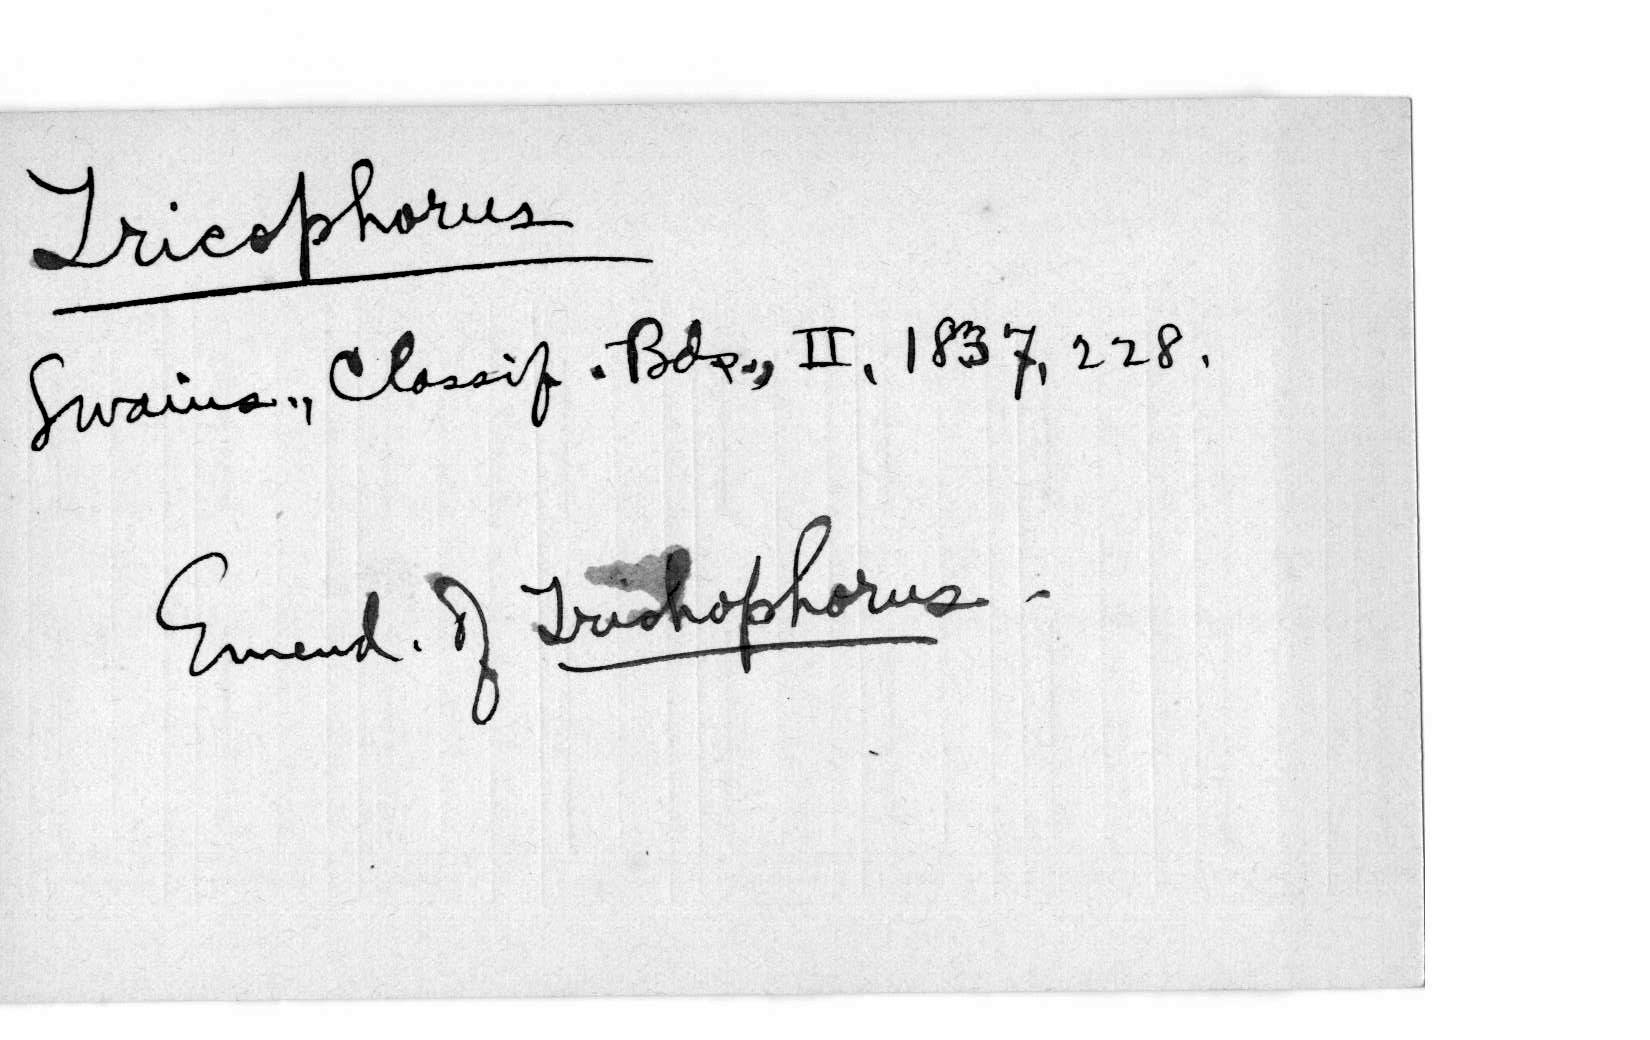 Tricophorus
Swains., Classif. Bds., II, 1837, 228.
Emend. of Trichophorus -